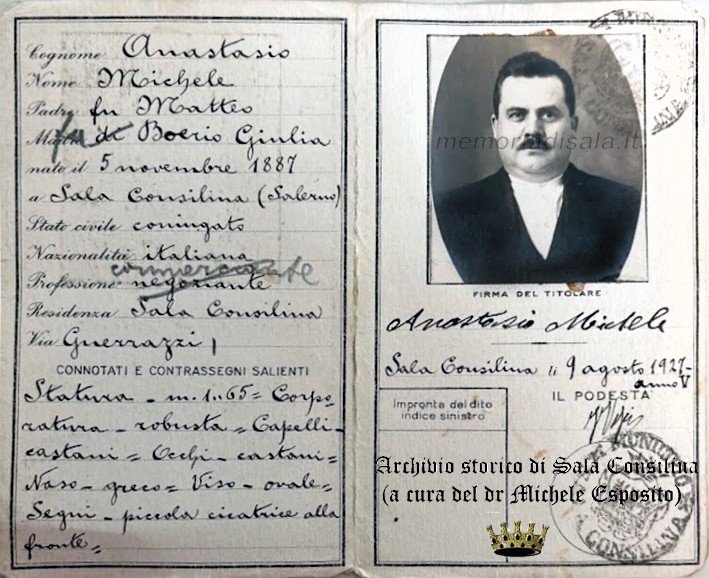 Cognome Anastasio
Nome Michele
Padre fu Matteo
Madre fu di Boerio Giulia
nato il 5 novembre 1887
a Sala Consilina (Salerno)
Stato civile coniugato
Nazionalità italiana
commerciante
Professione negoziante
Residenza Sala Consilina
Via Guerrazzi 1
CONNOTATI E CONTRASSEGNI SALIENTI
Statura - m. 1..65 = Corpo-
ratura - robusta = Capelli -
castani = Occhi - castani =
Naso - greco = Viso - ovale =
Segni - piccola cicatrice alla
fronte =
memoriedisala.it
FIRMA DEL TITOLARE
Anastasio Michele
Sala Consilina li 9 agosto 1927 -
anno V
IL PODESTÀ
Impronta del dito
indice sinistro
Archivio storico di Sala Consilina
(a cura del dr Michele Esposito)
CONSILINA